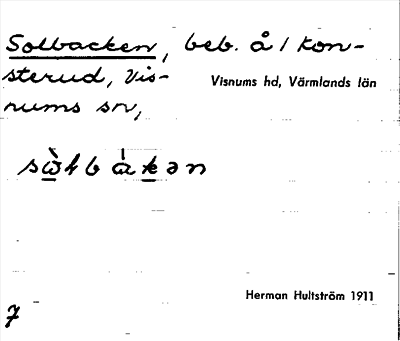 Solbacken, beb. å / kon-
sterud, Vis-
nums sn,
Visnums hd, Värmlands län
Herman Hultström 1911
7